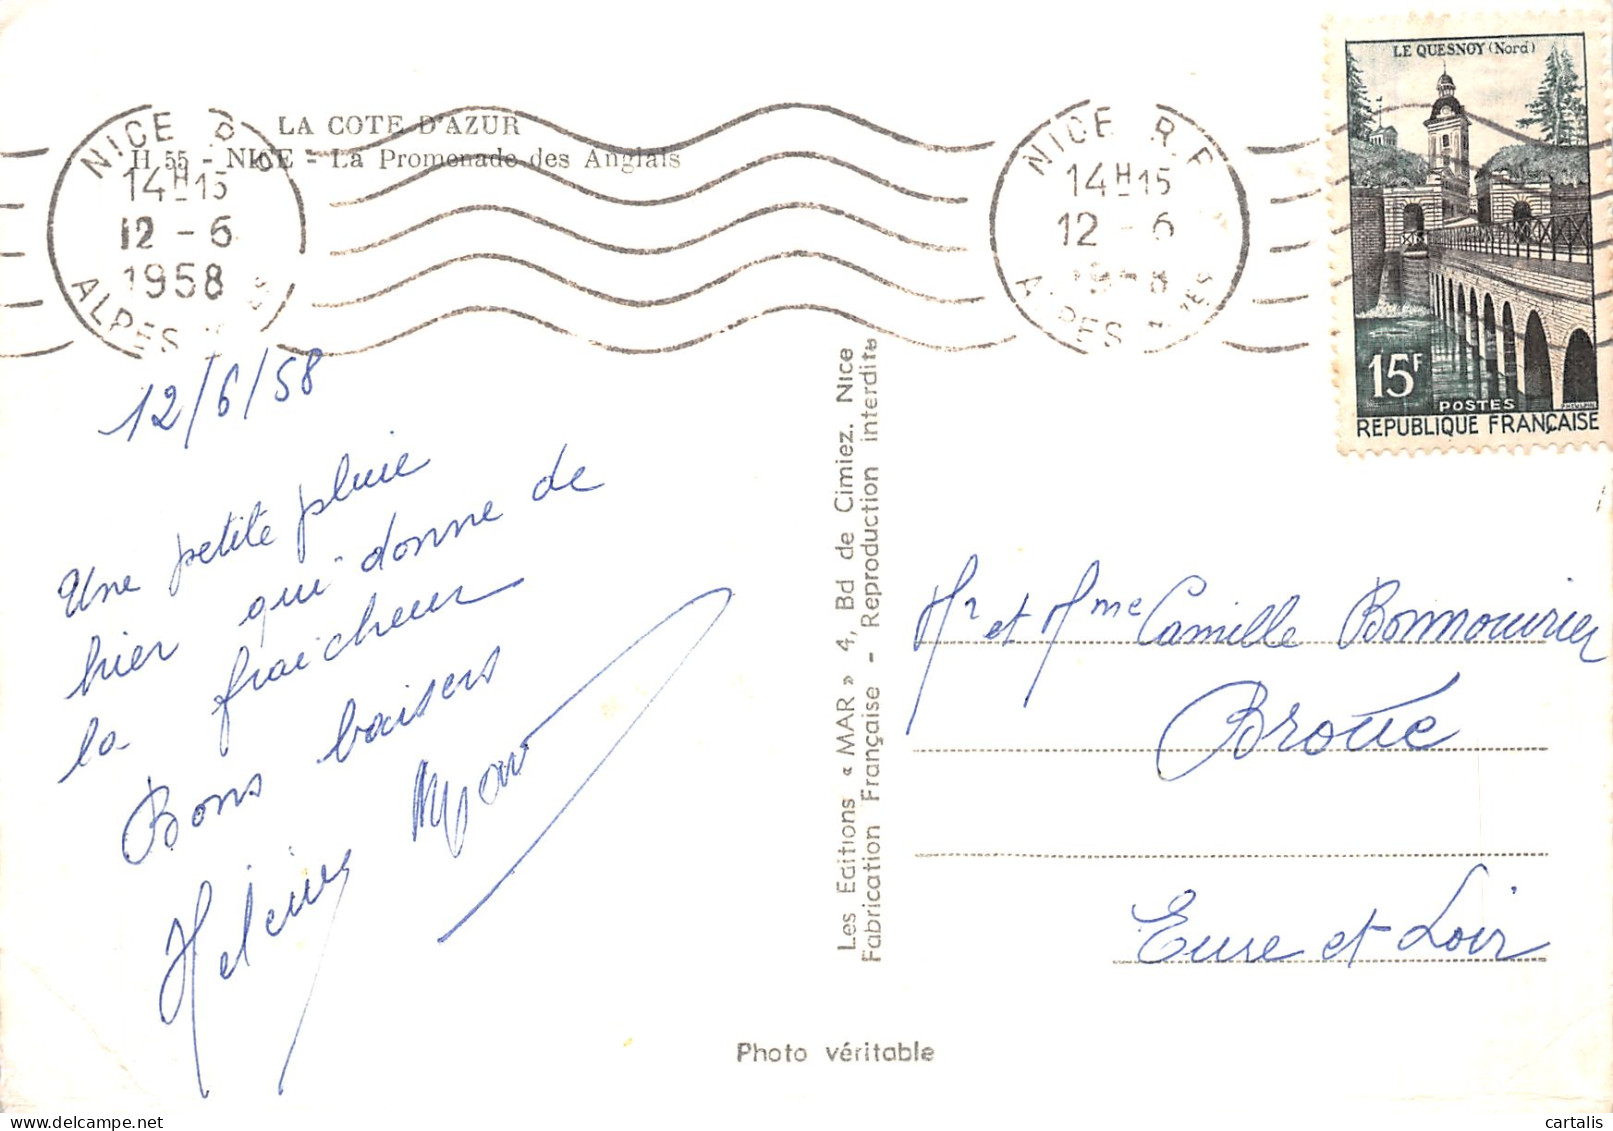 LA COTE D'AZUR
H. 55 - NICE - La Promenade des Anglais
NICE R.P
14H15
12 - 6
1958
ALPES
NICE R.P
14H15
12 - 6
ALPES
LE QUESNOY (Nord)
15F
POSTES
REPUBLIQUE FRANÇAISE
12/6/58
Une petite pluie
hier qui donne de
la fraicheur
Bons baisers
Les Editions « MAR » 4, Bd de Cimiez. Nice
Fabrication Française - Reproduction interdite
Mr et Mme Camille
Broué
Eure et Loir
Photo véritable
delcampe.net
cartalis